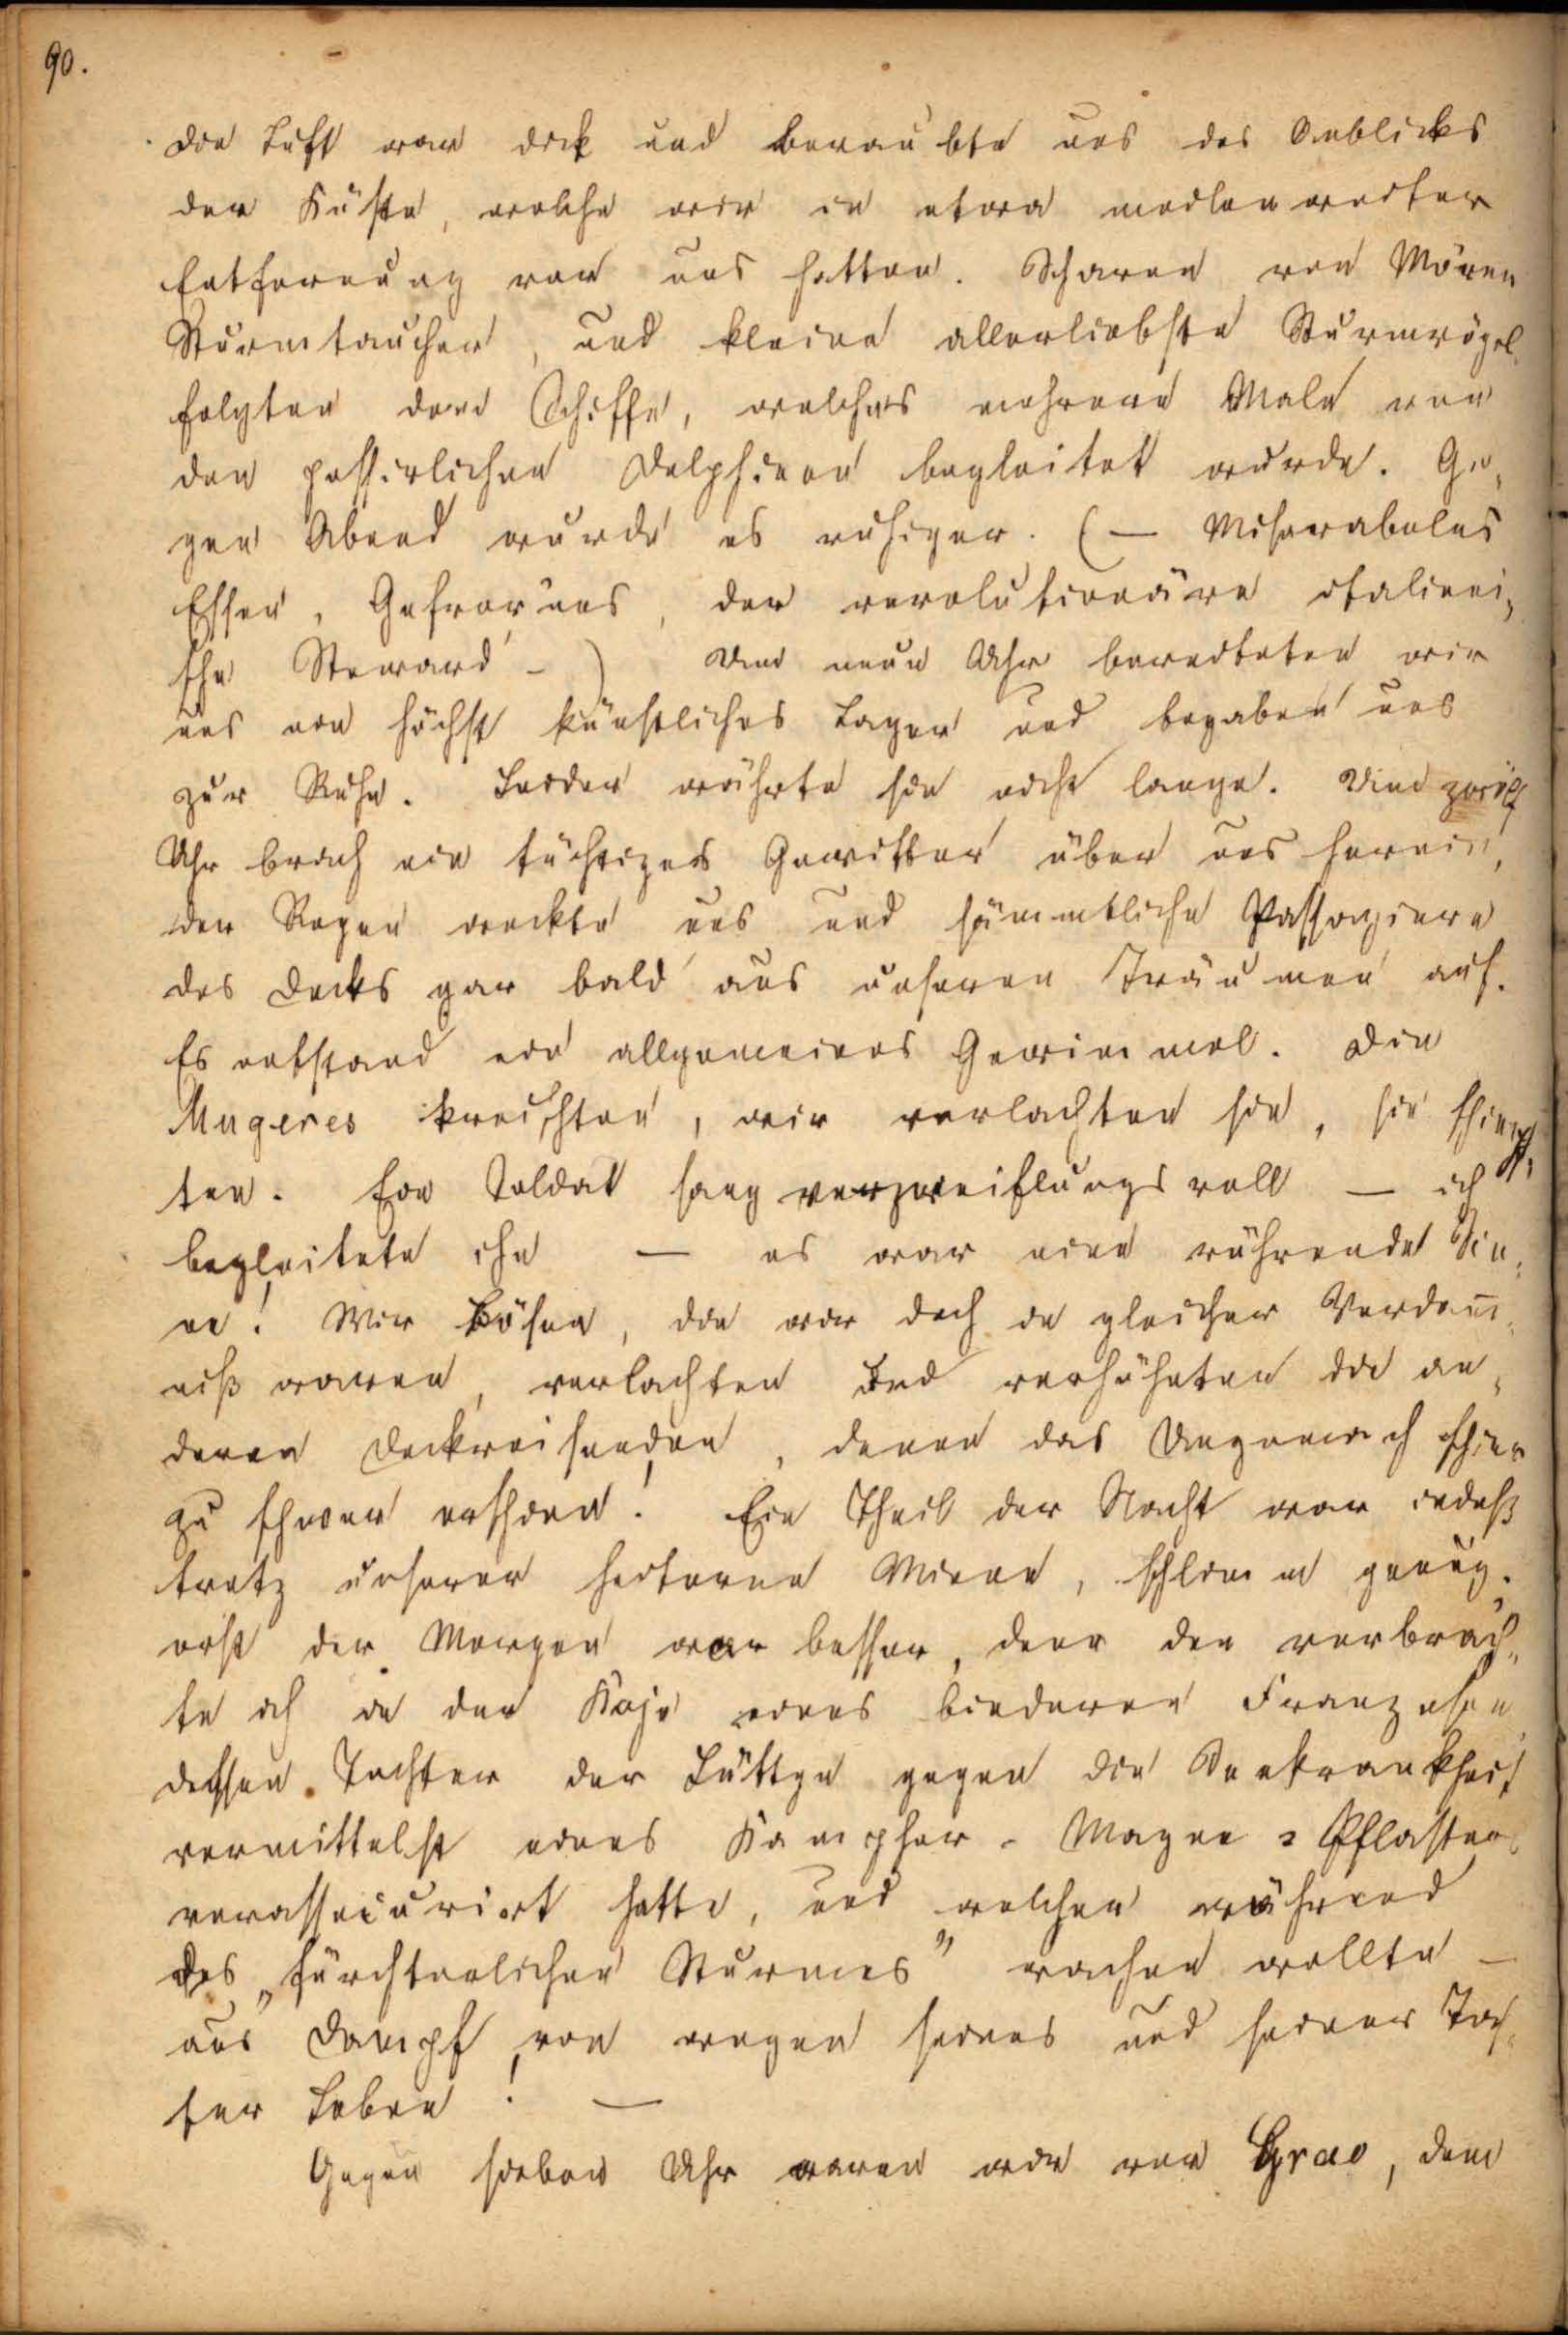 90.
Die Luft war dick und beraubte uns des Anblicks
der Küste, welche wir in etwa meilenweiter
Entfernung vor uns hatten. Scharen von Möven
Sturmtaucher, und kleine allerliebste Sturmvögel
folgten dem Schiffe, welches mehrere Male von
den possirlichen Delphinen begleitet wurde. Ge-
gen Abend wurde es ruhiger. (— Miserabeles
Essen, Gefror'nes, der revolutionäre italieni-
sche Steward –) Um neun Uhr bereiteten wir
uns ein höchst künstliches Lager und begaben uns
zur Ruhe. Leider währte sie nicht lange. Um zwölf
Uhr brach ein tüchtiges Gewitter über uns herein,
der Regen weckte uns und sämmtliche Passagiere
des Decks gar bald aus unseren Träumen auf.
Es entstand ein allgemeines Gewimmel. Die
Mugeres kreischten, wir verlachten sie, sie schimpf-
ten. Ein Soldat sang verzweiflungsvoll — ich
begleitete ihn — es war eine rührende Sce-
ne! Wir Bösen, die wir doch in gleicher Verdam̅-
niß waren, verlachten und verhöhnten die an-
deren Deckreisenden, denen das Ungemach schier
zu schwer erschien! Ein Theil der Nacht war indeß
trotz unserer heiteren Miene, schlimm genug.
erst der Morgen war besser, denn den verbrach-
te ich in der Koje eines biederen Franzosen
dessen Tochter der Lüttge gegen die Seekrankheit
vermittelst eines Kampher-Magen-Pflasters
verassecurirt hatte, und welcher während
des „fürchterlichen Sturmes" wachen wollte —
aus Dampf von wegen seines und seiner Toch-
ter Leben! —
Gegen sieben Uhr waren wir vor Grao, dem